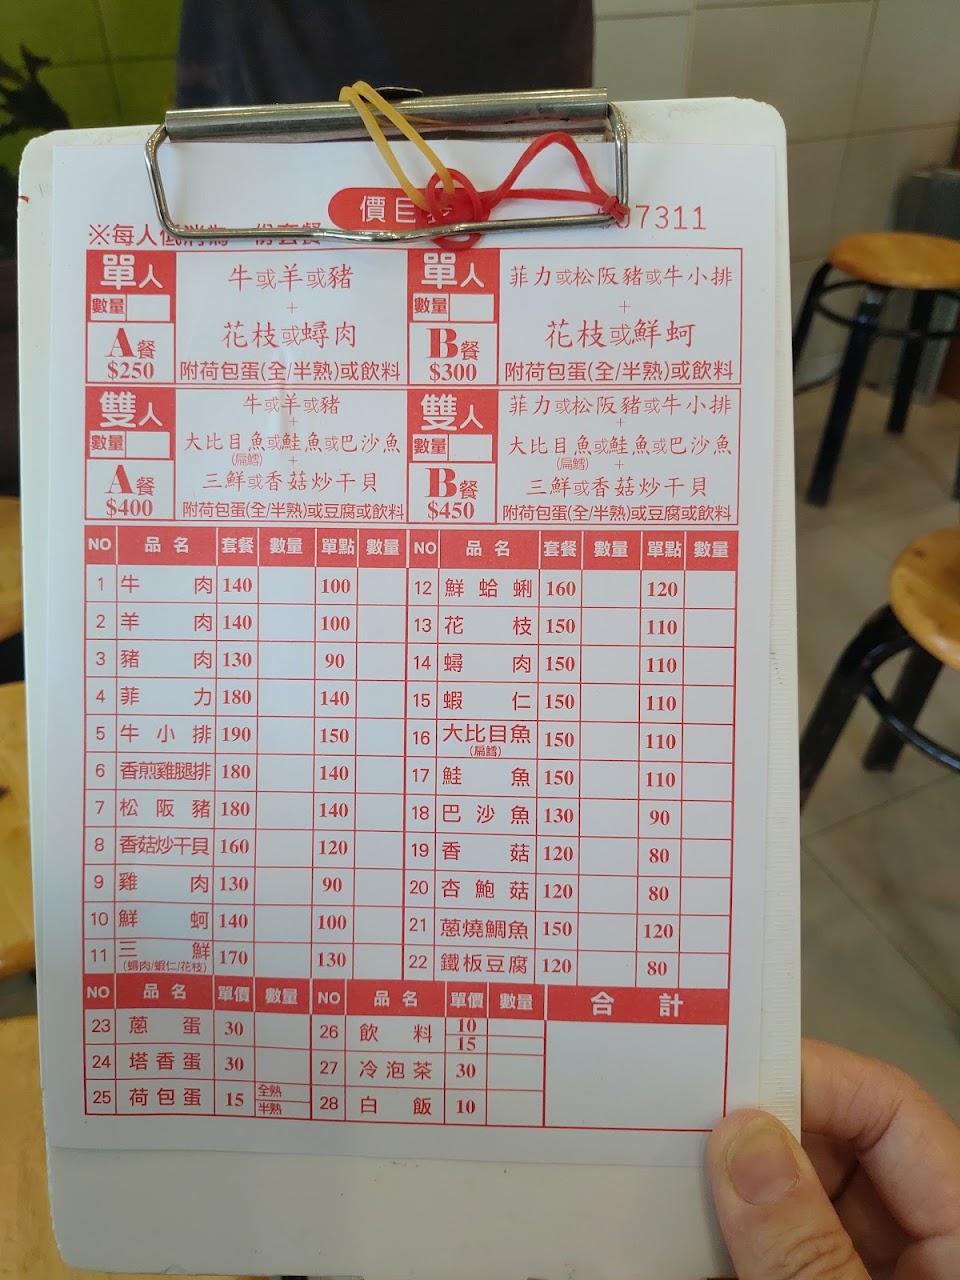 價目
07311
※每人低消為一份套餐
單人
數量
A餐
$250
牛或羊或豬
+
花枝或蟳肉
附荷包蛋(全/半熟)或飲料
單人
數量
B餐
$300
菲力或松阪豬或牛小排
+
花枝或鮮蚵
附荷包蛋(全/半熟)或飲料
雙人
數量
A餐
$400
牛或羊或豬
+
大比目魚或鮭魚或巴沙魚
(扁鱈) +
三鮮或香菇炒干貝
附荷包蛋(全/半熟)或豆腐或飲料
雙人
數量
B餐
$450
菲力或松阪豬或牛小排
+
大比目魚或鮭魚或巴沙魚
(扁鱈) +
三鮮或香菇炒干貝
附荷包蛋(全/半熟)或豆腐或飲料
NO 品名 套餐 數量 單點 數量
1 牛肉 140 100
2 羊肉 140 100
3 豬肉 130 90
4 菲力 180 140
5 牛小排 190 150
6 香煎雞腿排 180 140
7 松阪豬 180 140
8 香菇炒干貝 160 120
9 雞肉 130 90
10 鮮蚵 140 100
11 三鮮 170 130
(蟳肉/蝦仁/花枝)
NO 品名 套餐 數量 單點 數量
12 鮮蛤蜊 160 120
13 花枝 150 110
14 蟳肉 150 110
15 蝦仁 150 110
16 大比目魚 150 110
(扁鱈)
17 鮭魚 150 110
18 巴沙魚 130 90
19 香菇 120 80
20 杏鮑菇 120 80
21 蔥燒鯛魚 150 120
22 鐵板豆腐 120 80
NO 品名 單價 數量
23 蔥蛋 30
24 塔香蛋 30
25 荷包蛋 15 全熟
半熟
NO 品名 單價 數量
26 飲料 10
15
27 冷泡茶 30
28 白飯 10
合計